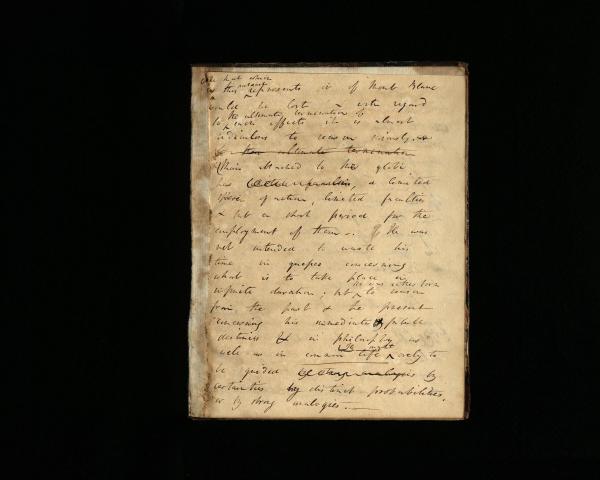 that which
in this represents is of Mont Blanc
would be lost with regard
the ultimate termination of
to such effects it is almost
ridiculous to reason seriously
ultimate termination
Man attached to this globe
has a limited
sphere of action, limited faculties
& but a short period for the
employment of them. He was
not intended to waste his
time in guesses concerning
what is to take place in
infinite duration; but to reason
from the past & the present
concerning his immediate future
destinies & in philosophy as
He ought
well as in common life only to
be guided by
certainties by distinct probabilities,
or by strong analogies.